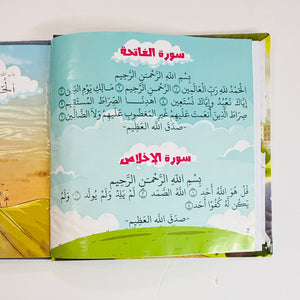 سورة الفاتحة
بِسْمِ اللَّهِ الرَّحْمَنِ الرَّحِيمِ
الْحَمْدُ لِلَّهِ رَبِّ الْعَالَمِينَ ۞ الرَّحْمَنِ الرَّحِيمِ ۞ مَالِكِ يَوْمِ الدِّينِ ۞
إِيَّاكَ نَعْبُدُ وَإِيَّاكَ نَسْتَعِينُ ۞ اهْدِنَا الصِّرَاطَ الْمُسْتَقِيمَ ۞
صِرَاطَ الَّذِينَ أَنْعَمْتَ عَلَيْهِمْ غَيْرِ الْمَغْضُوبِ عَلَيْهِمْ وَلَا الضَّالِّينَ ۞
-صَدَقَ اللَّهُ الْعَظِيم-
سورة الإخلاص
بِسْمِ اللَّهِ الرَّحْمَنِ الرَّحِيمِ
قُلْ هُوَ اللَّهُ أَحَدٌ ۞ اللَّهُ الصَّمَدُ ۞ لَمْ يَلِدْ وَلَمْ يُولَدْ ۞ وَلَمْ
يَكُن لَّهُ كُفُوًا أَحَدٌ ۞
-صَدَقَ اللَّهُ الْعَظِيم-